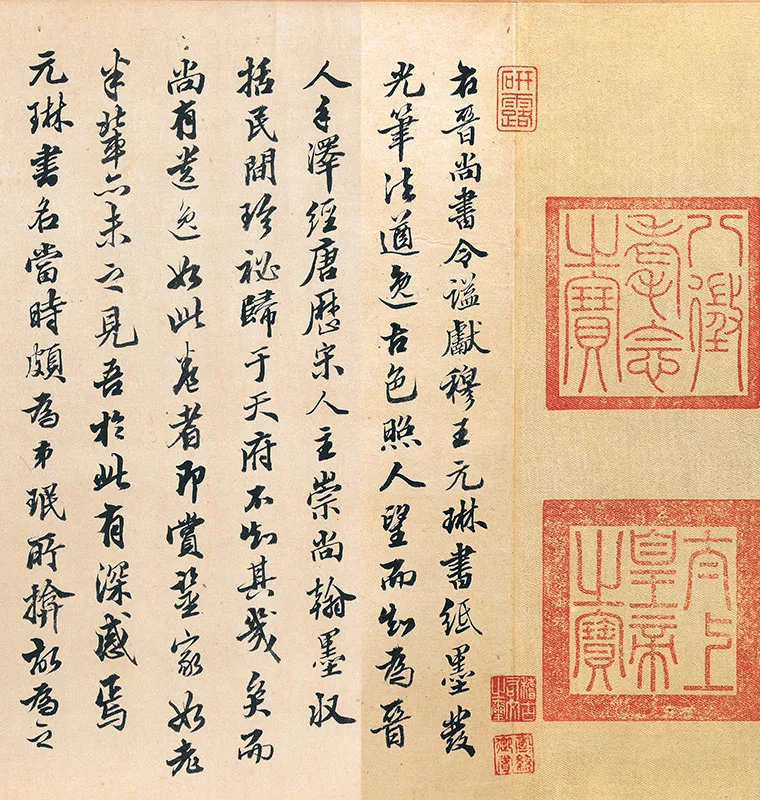 八徵
耄念
之寶
太上
皇帝
之寶
研露
稽古
右文
之璽
右晉尚書令謚獻穆王元琳書紙墨發
光筆法遒逸古色照人望而知為晉
人手澤經唐歷宋人主崇尚翰墨収
括民間珍祕歸于天府不知其幾矣而
尚有遺逸如此卷者即賞鑒家如老
米輩亦未之見吾於此有深感焉
元琳書名當時頗為弟珉所揜故為之